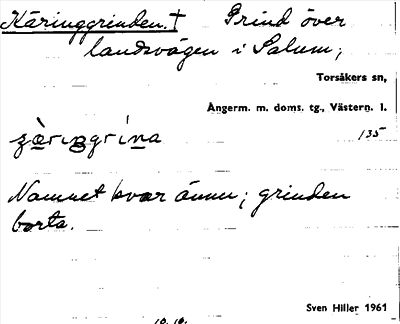 Käringgrinden. † Grind över
landsvägen i Salum;
Torsåkers sn,
Ångerm. m. doms. tg., Västern. l.
135
Namnet kvar ännu; grinden
borta.
Sven Hiller 1961
10.10.